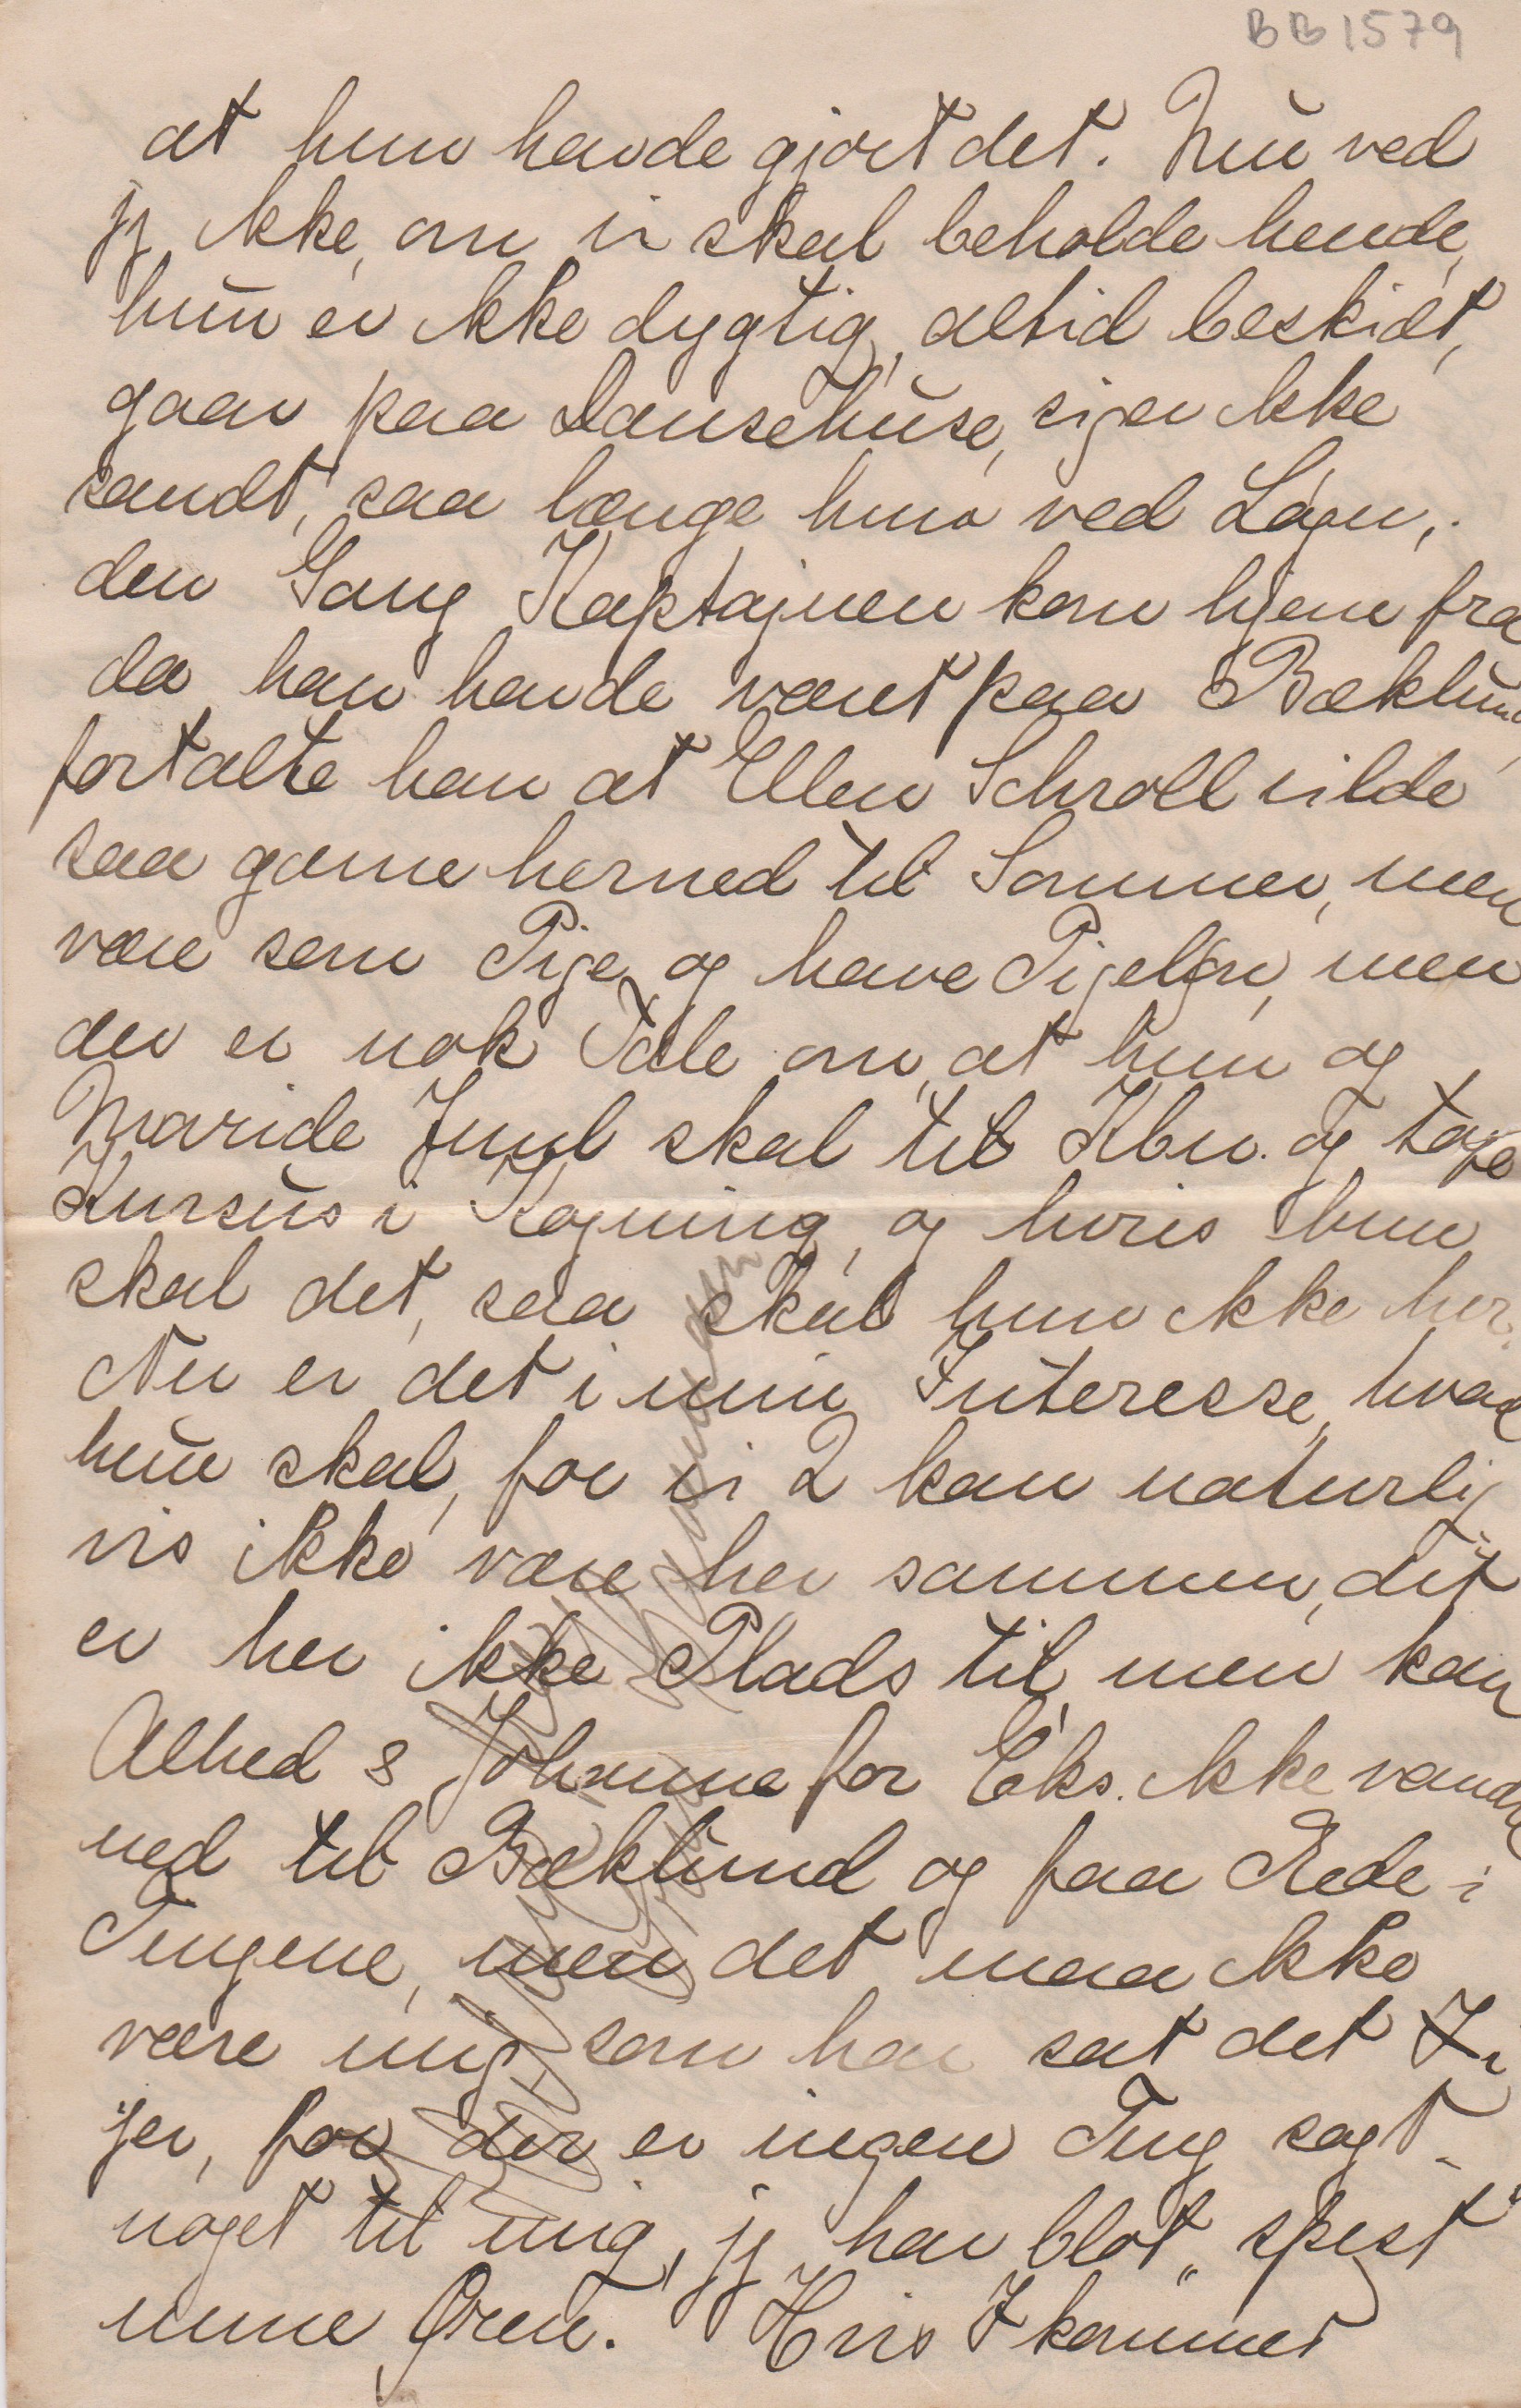 BB1579
at hun havde gjort det. Nu ved
jeg ikke, om vi skal beholde hende,
hun er ikke dygtig, altid beskidt,
gaar paa Dansehuse, siger ikke
sandt, saa længe hun ved Løgn,.
den Gang Kaptajnen kom hjem fra
da han havde været paa Bæklund
fortalte han at Ellen Schroll vilde
saa gærne herned til Sommer, men
være som Pige og have Pigeløn, men
der er nok Tale om, at hun og
Maride Juul skal til Kbn. og tage
Kursus i Kogning, og hvis hun
skal det, saa skal hun ikke her.
Nu er det i min Interesse, hvad
hun skal, for vi 2 kan naturlig
vis ikke være her sammen, det
er her ikke Plads til, men kan
Alhed & Johanne for Eks. ikke vandre
ned til Bæklund og faa Rede i
Tingene, men det maa ikke
være mig som har sat det I
jer, for der er ingen Ting sagt
noget til mig, jeg har blot „spist"
mine Øren. Hvis I kommer